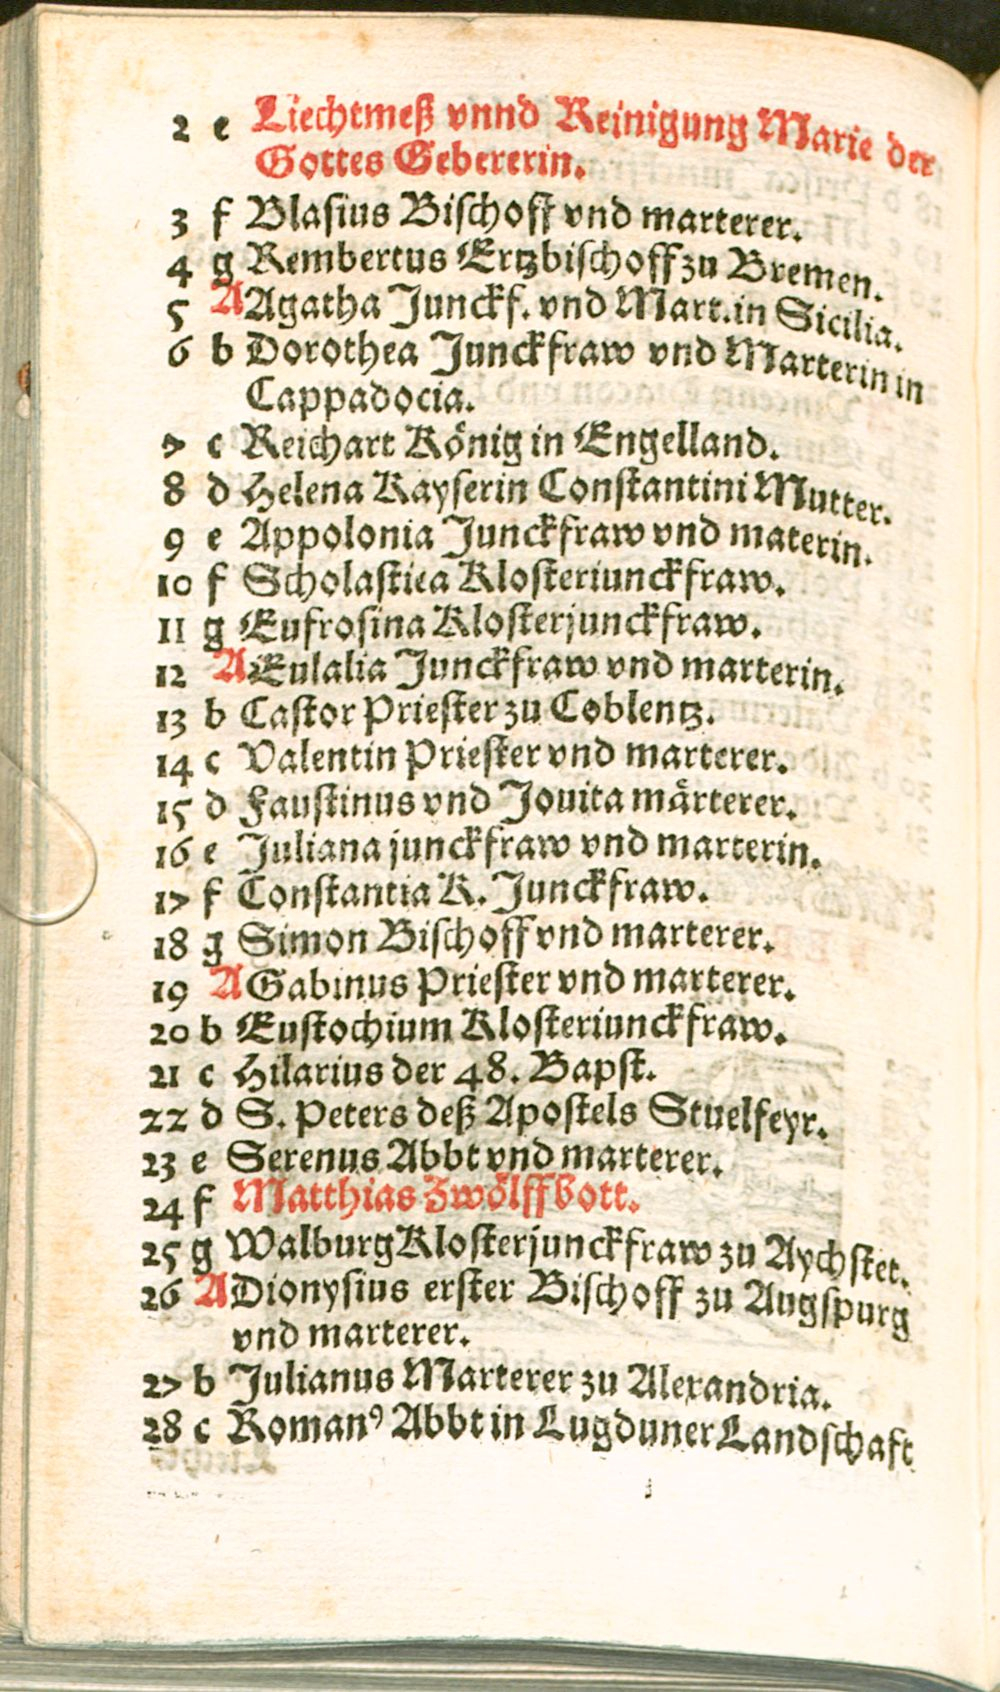 2 e Liechtmeß vnnd Reinigung Marie der
Gottes Gebererin.
3 f Blasius Bischoff vnd marterer.
4 g Rembertus Ertzbischoff zu Bremen.
5 A Agatha Junckf. vnd Mart. in Sicilia.
6 b Dorothea Junckfraw vnd Marterin in
Cappadocia.
7 c Reichart König in Engelland.
8 d Helena Kayserin Constantini Mutter.
9 e Appolonia Junckfraw vnd materin.
10 f Scholastica Klosteriunckfraw.
11 g Eufrosina Klosterjunckfraw.
12 A Eulalia Junckfraw vnd marterin.
13 b Castor Priester zu Coblentz.
14 c Valentin Priester vnd marterer.
15 d Faustinus vnd Jouita märterer.
16 e Juliana junckfraw vnd marterin.
17 f Constantia K. Junckfraw.
18 g Simon Bischoff vnd marterer.
19 A Gabinus Priester vnd marterer.
20 b Eustochium Klosteriunckfraw.
21 c Hilarius der 48. Bapst.
22 d S. Peters deß Apostels Stuelfeyr.
23 e Serenus Abbt vnd marterer.
24 f Matthias Zwölffbott.
25 g Walburg Klosterjunckfraw zu Aychstet.
26 A Dionysius erster Bischoff zu Augspurg
vnd marterer.
27 b Julianus Marterer zu Alexandria.
28 c Romanꝰ Abbt in Lugduner Landschaft